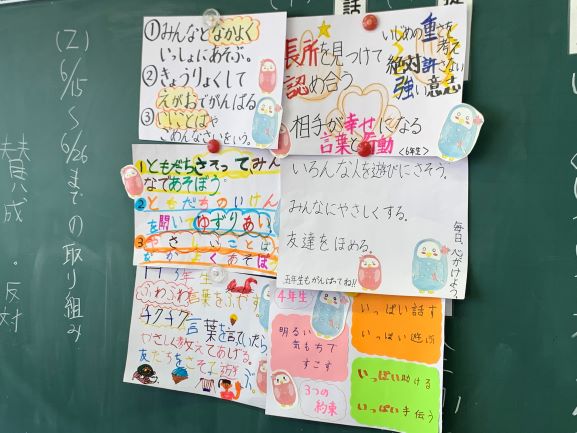 (Z) 6/15～6/26までの取り組み
賛成・反対
話
①みんなとなかよく
いっしょにあそぶ。
②きょうりょくして
えがおでがんばる
③いいことばや
ごめんなさいをいう。
いじめの重さを考え
絶対許さない
強い意志
長所を見つけて
認め合う
相手が幸せになる
言葉と行動
<6年生>
1ともだちをさそってみん
なであそぼう。
2ともだちのいけん
を聞いてゆずりあい
3やさしいことば
なかよくあそぼ
いろんな人を遊びにさそう。
みんなにやさしくする。
友達をほめる。
毎日、心がけよう
五年生もがんばってね!!
3年生
ふわふわ言葉をふやす
チクチク言葉を言っていたら
やさしく教えてあげる。
友だちをさそって遊ぶ。
4年生
明るい
気もちで
すごす
3つの
約束
いっぱい話す
いっぱい遊ぶ
いっぱい助ける
いっぱい手伝う